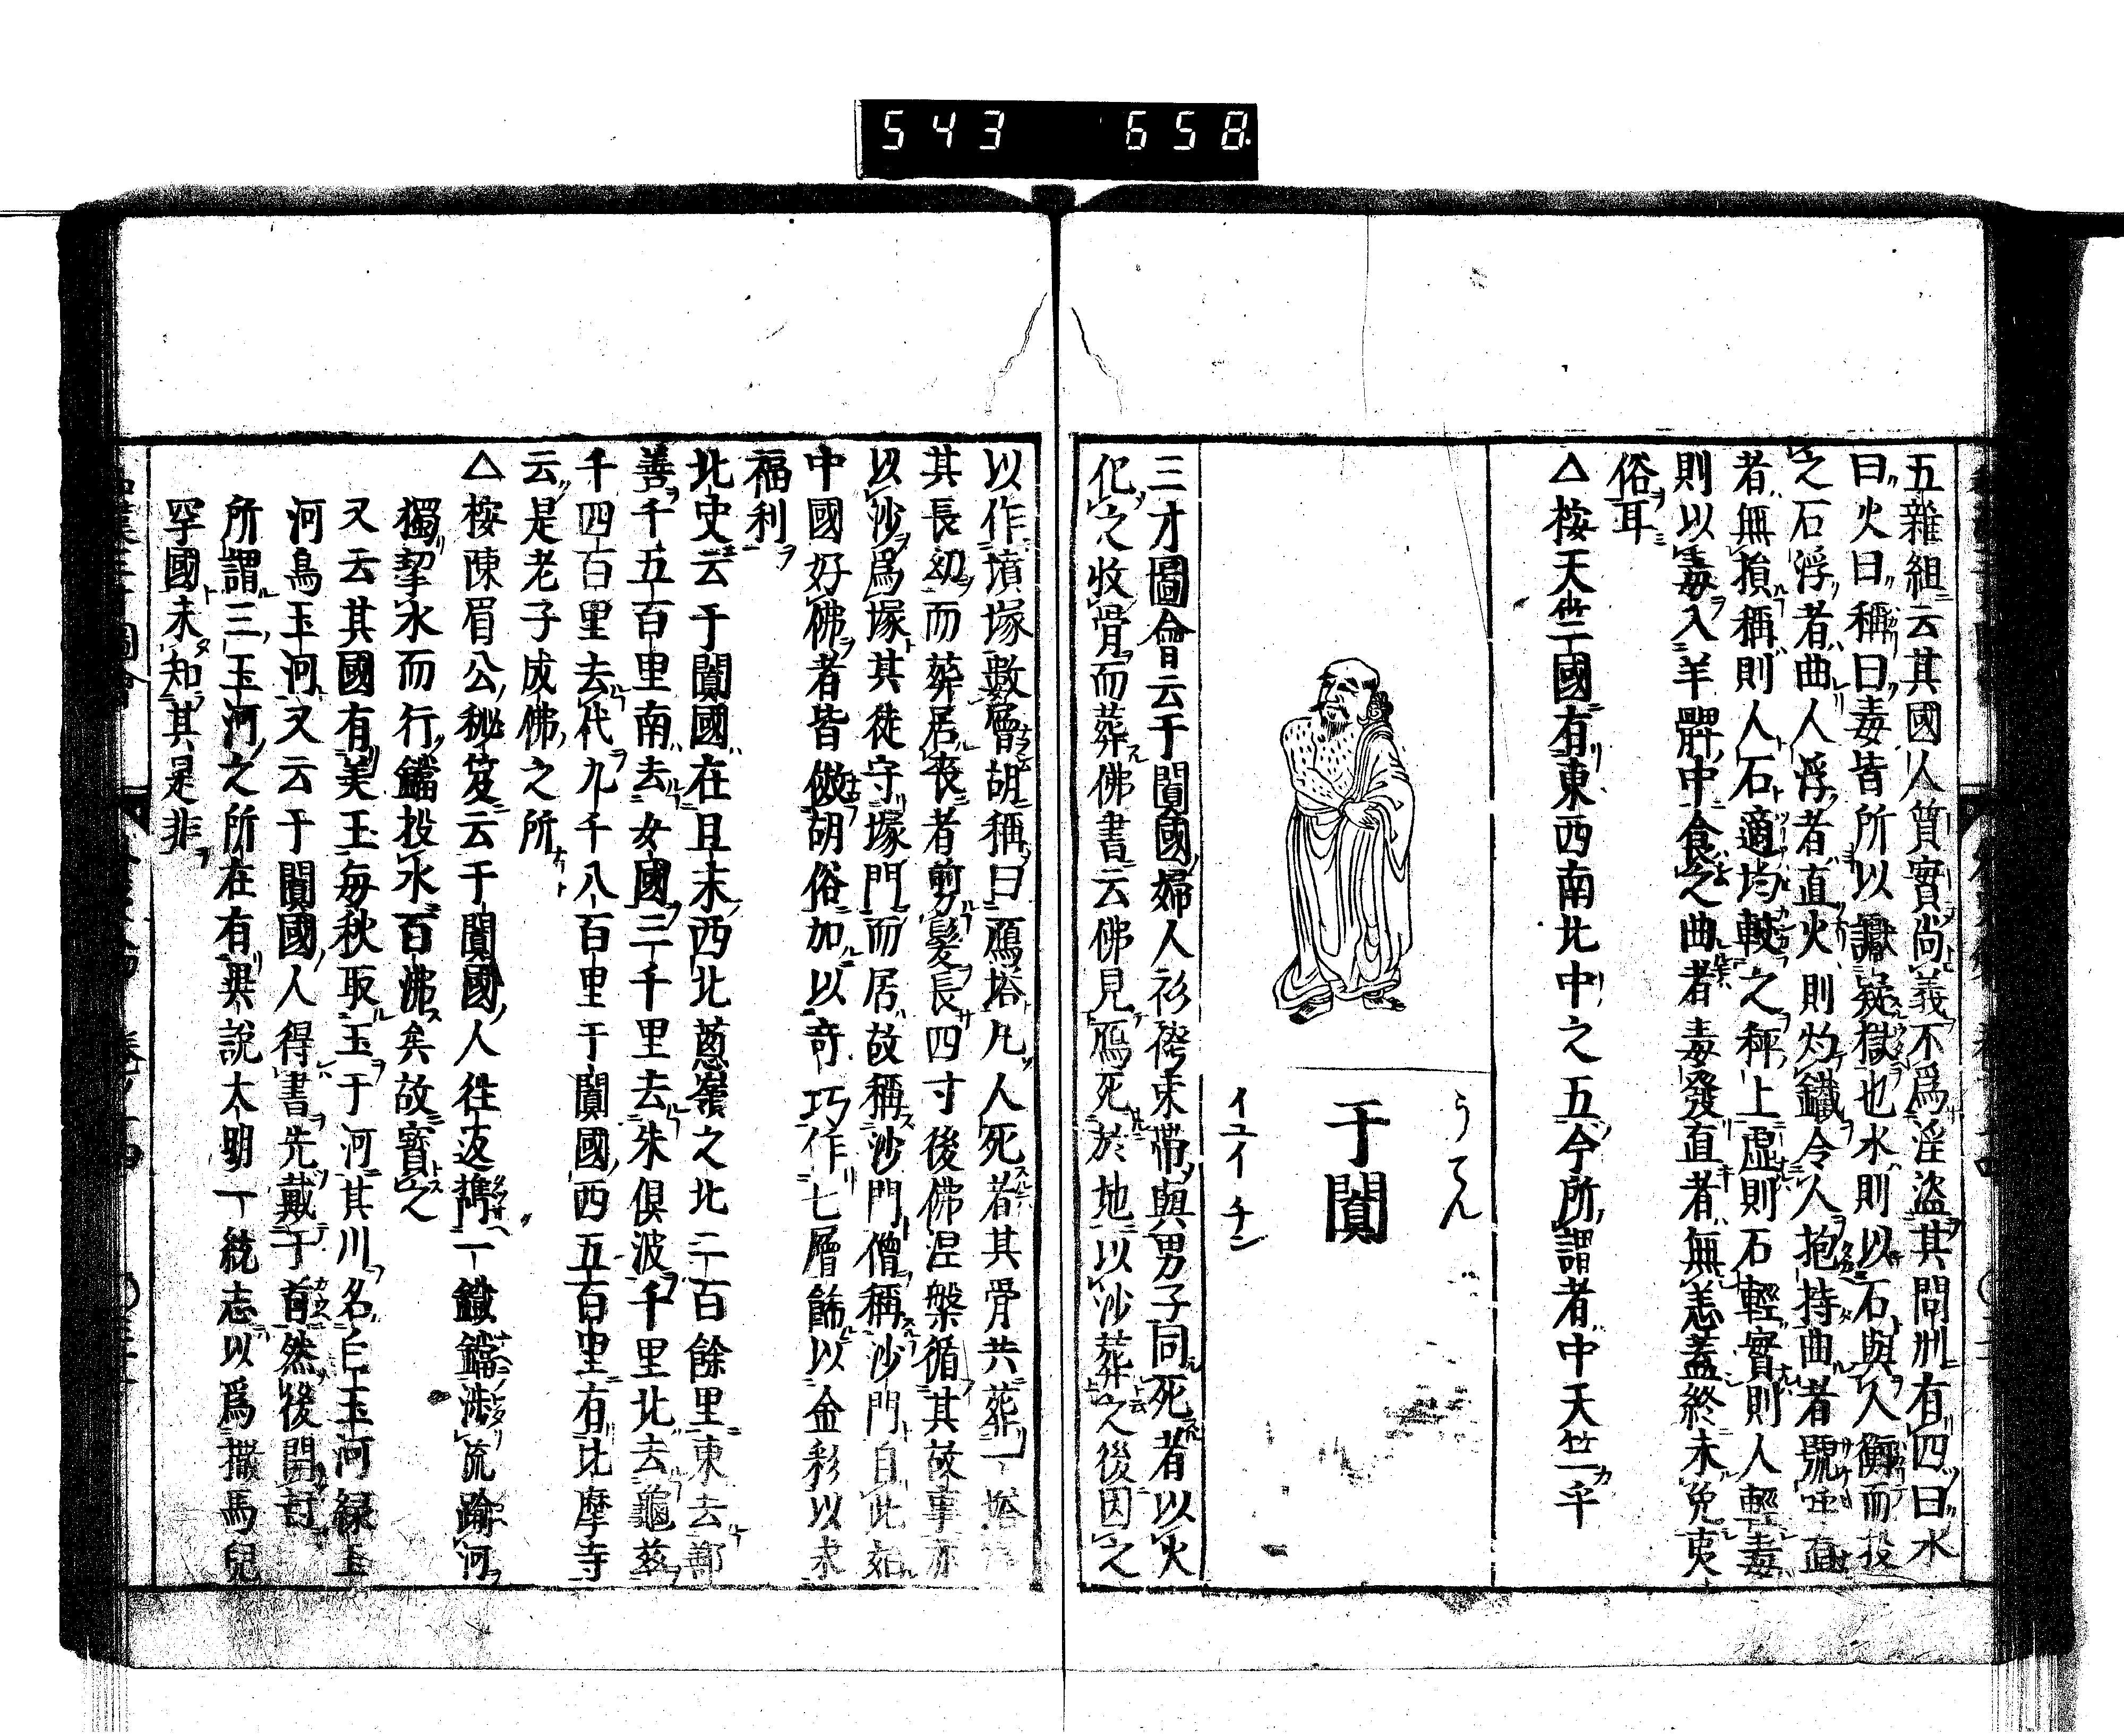 543 658
五雜組云其國人質實尚義不爲淫盜其問刑有四曰水
曰火曰稱曰毒皆所以讞疑獄也水則以石與人衡而投
之石浮者曲人浮者直火則灼鐵令人抱持曲者號呼直
者無損稱則人石適均較之秤上虛則石輕實則人輕毒
則以毒入羊髀中食之曲者毒發直者無恙蓋終未免夷
俗耳
△桉天竺國有東西南北中之五今所謂者中天竺乎
うてん
于闐
イユイ チン
三才圖會云于闐國婦人衫袴束帶與男子同死者以火
化之收骨而葬佛書云佛見鴈死於地以沙葬之後因之
以作墳塚數層胡稱曰鴈塔凡人死者其骨共葬一塔
其長幼而葬居喪者剪髮長四寸後佛涅槃循其故事亦
以沙爲塚其徒守塚門而居故稱沙門僧稱沙門自此始
中國好佛者皆倣胡俗加以奇巧作七層餙以金彩以求
福利
北史云于闐國在且末西北蔥嶺之北二百餘里東去鄯
善千五百里南去女國三千里去朱俱波千里北去龜茲
千四百里去代九千八百里于闐國西五百里有比摩寺
云是老子成佛之所
△桉陳眉公秘笈云于闐國人往返攜一鐵鐺涉流踰河
獨挈水而行鐺投水百沸矣故寳之
又云其國有美玉每秋取玉于河其川名白玉河綠玉
河烏玉河又云于闐國人得書先戴于首然後開封
所謂三玉河之所在有異說大明一統志以爲撒馬兒
罕國未知其是非